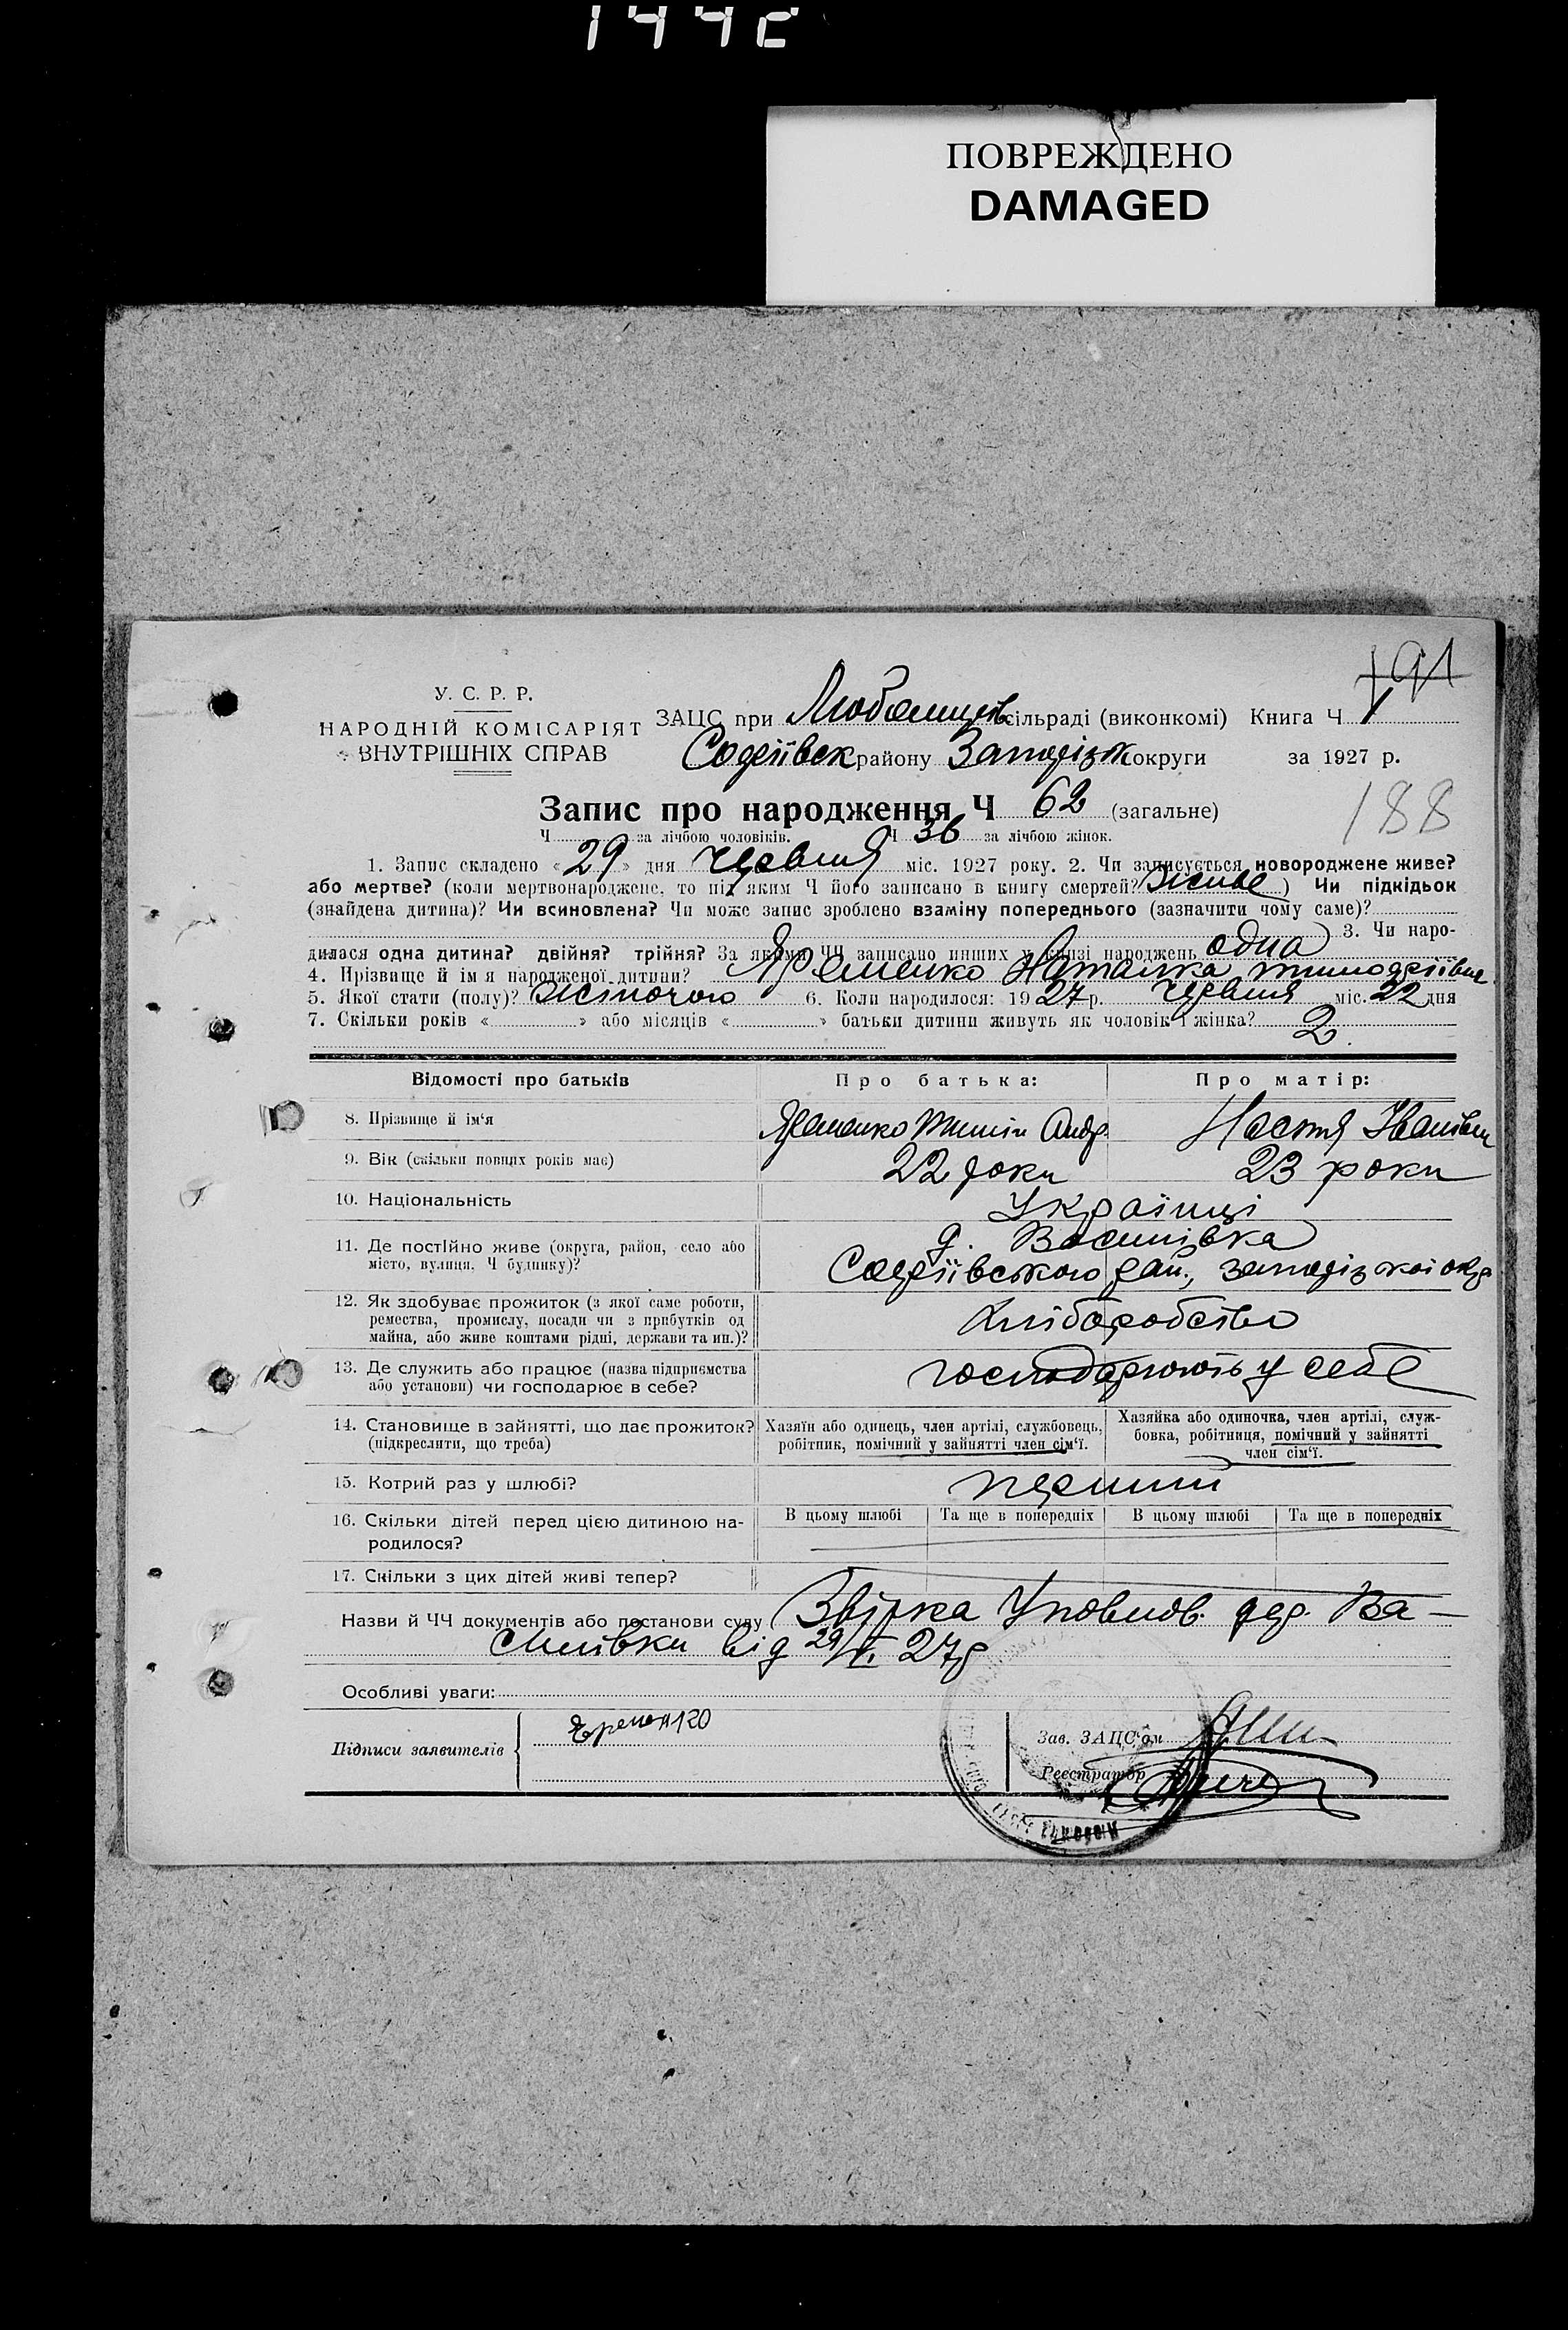 ПОВРЕЖДЕНО
DAMAGED
191
У. С. Р. Р.
НАРОДНІЙ КОМІСАРІЯТ
ВНУТРІШНІХ СПРАВ
ЗАЦС при Любимівсільраді (виконкомі) Книга Ч 1
Софіївськ району Запоріжж округи за 1927 р.
Запис про народження Ч 62 (загальне)
188
Ч за лічбою чоловіків. Ч 36 за лічбою жінок.
1. Запис складено «29» дня червня міс. 1927 року. 2. Чи записується новороджене живе?
або мертве? (коли мертвонароджене, то під яким Ч його записано в книгу смертей? Живе) Чи підкідьок
(знайдена дитина)? Чи всиновлена? Чи може запис зроблено взаміну попереднього (зазначити чому саме)?
3. Чи наро-
дилася одна дитина? двійня? трійня? За якими ЧЧ записано инших у книзі народжень одна
4. Прізвище й імя народженої дитини? Яременко Наталка Тимофіївна
5. Якої стати (полу)? жіночого 6. Коли народилося: 1927 р. червня міс. 22 дня
7. Скільки років « » або місяців « » батьки дитини живуть як чоловік і жінка? 2.
Відомості про батьків Про батька: Про матір:
8. Прізвище й ім‘я Яременко Тиміш Андр. Настя Іванівна
9. Вік (скільки повних років має) 22 роки 23 роки
10. Національність Українці
11. Де постійно живе (округа, район, село або місто, вулиця, Ч будинку)? д. Василівка
Софіївського рай., запорізької окр
12. Як здобуває прожиток (з якої саме роботи,
ремества, промислу, посади чи з прибутків од
майна, або живе коштами рідні, держави та ин.)? Хліборобство
13. Де служить або працює (назва підприємства
або установи) чи господарює в себе? господарюють у себе
14. Становище в зайнятті, що дає прожиток?
(підкреслити, що треба)
Хазяїн або одинець, член артілі, службовець,
робітник, помічний у зайнятті член сім‘ї.
Хазяйка або одиночка, член артілі, служ-
бовка, робітниця, помічний у зайнятті
член сім‘ї.
15. Котрий раз у шлюбі? перший
16. Скільки дітей перед цією дитиною на-
родилося?
В цьому шлюбі Та ще в попередніх В цьому шлюбі Та ще в попередніх
17. Скільки з цих дітей живі тепер?
Назви й ЧЧ документів або постанови суду Звірка Уповнов. дер. Ва-
силівки від 29/VI. 27р
Особливі уваги:
Підписи заявителів Яременко
Зав. ЗАЦС‘ом
Реєстратор